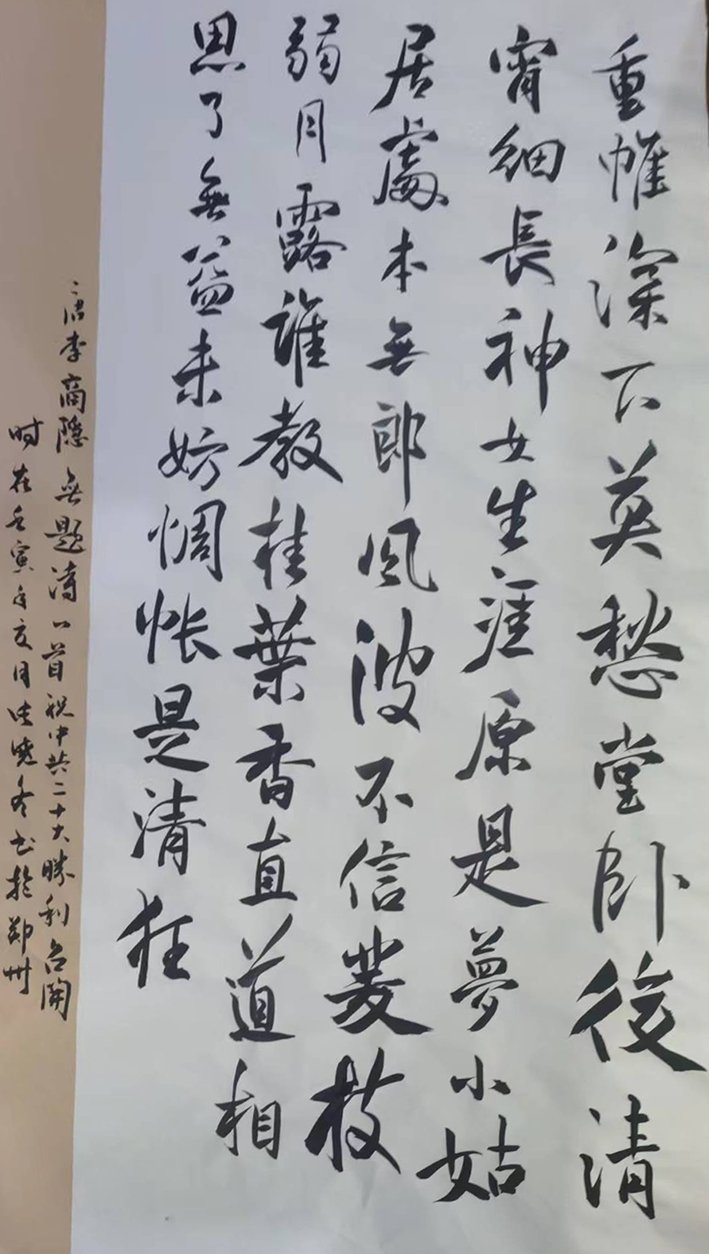 重帷深下莫愁堂卧後清
宵細長神女生涯原是夢小姑
居處本無郎風波不信菱枝
弱月露誰教桂葉香直道相
思了無益未妨惆怅是清狂
唐李商隐無题诗一首祝中共二十大勝利召開
时在壬寅年亥月晓冬书於郑州